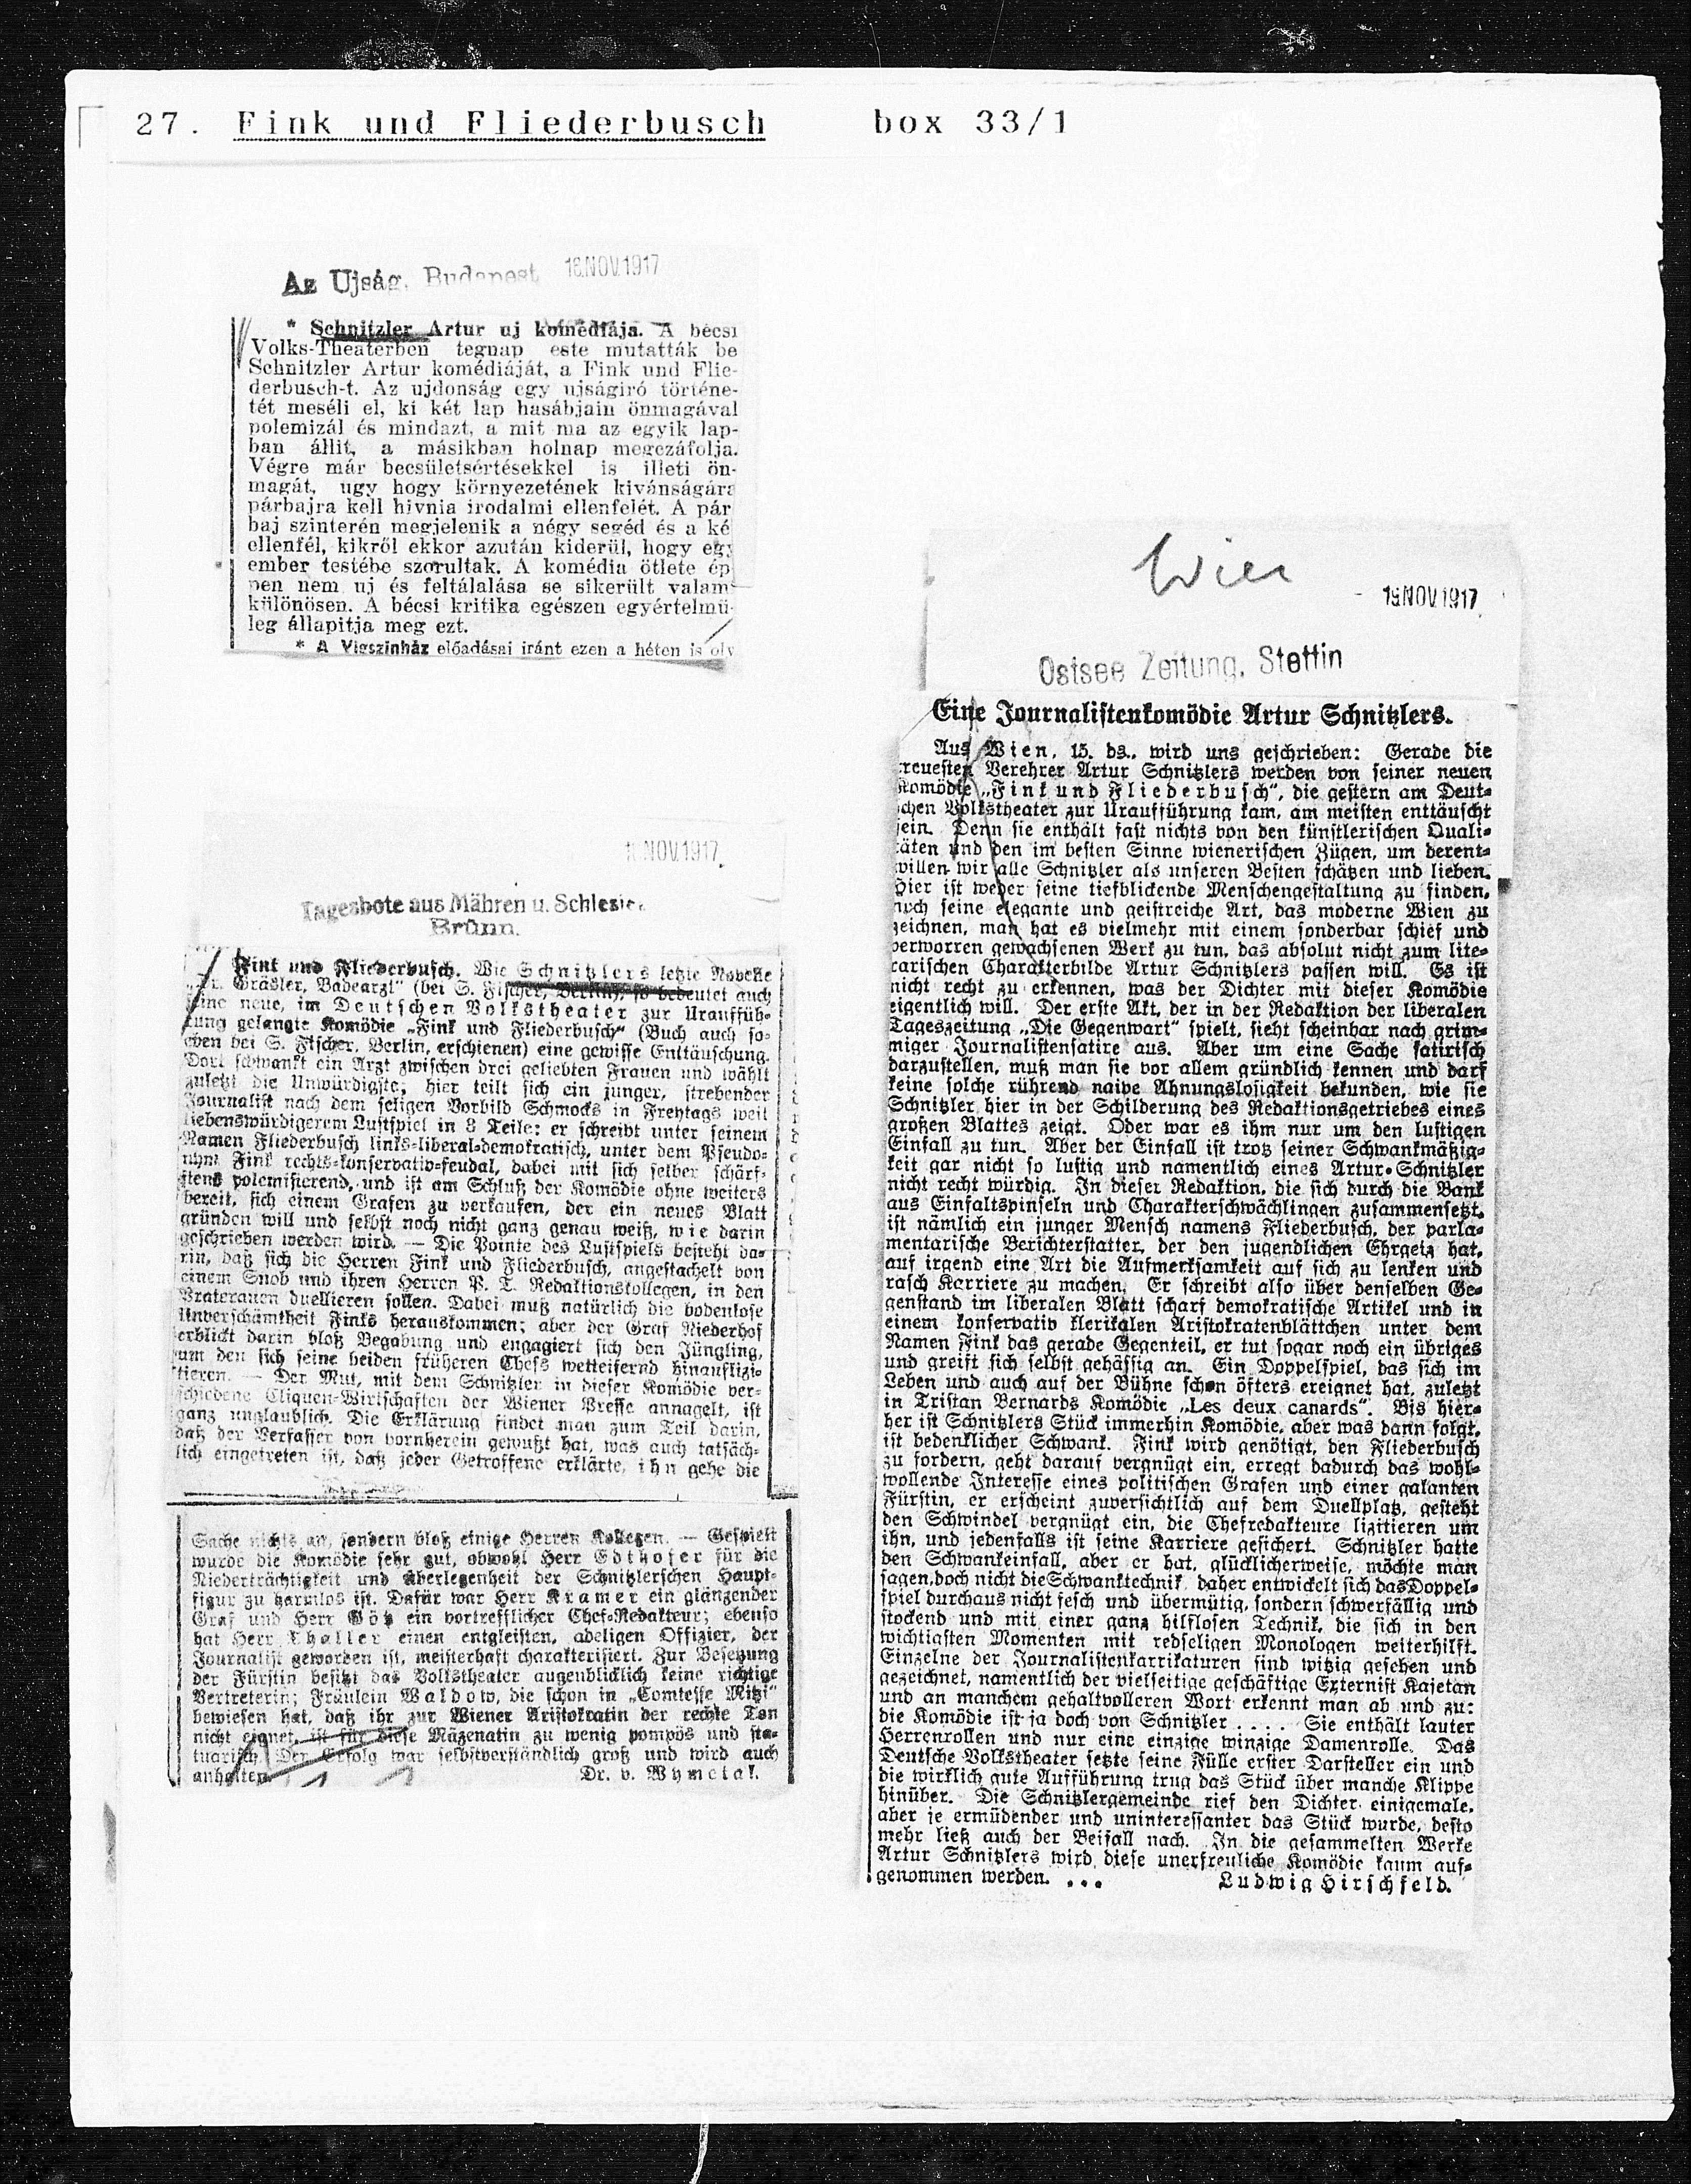 27. Fink und Fliederbusch box 33/1
Az Ujság, Budapest 16.NOV.1917
* Schnitzler Artur uj komédiája. A bécsi
Volks-Theaterben tegnap este mutatták be
Schnitzler Artur komédiáját, a Fink und Flie-
derbusch-t. Az ujdonság egy ujságiró történe-
tét meséli el, ki két lap hasábjain önmagával
polemizál és mindazt, a mit ma az egyik lap-
ban állit, a másikban holnap megczáfolja.
Végre már becsületsértésekkel is illeti ön-
magát, ugy hogy környezetének kivánságára
párbajra kell hivnia irodalmi ellenfelét. A pár
baj szinterén megjelenik a négy segéd és a ké
ellenfél, kikről ekkor azután kiderül, hogy egy
ember testébe szorultak. A komédia ötlete ép
pen nem uj és feltálalása se sikerült valami
különösen. A bécsi kritika egészen egyértelmü-
leg állapitja meg ezt.
* A Vigszinház előadásai iránt ezen a héten is oly
NOV.1917
Tagesbote aus Mähren u. Schlesien
Brünn.
Fink und Fliederbusch. Wie Schnitzlers letzte Novelle
„Dr. Gräsler, Badearzt“ (bei S. Fischer, Berlin), so bedeutet auch
seine neue, im Deutschen Volkstheater zur Urauffüh-
rung gelangte Komödie „Fink und Fliederbusch“ (Buch auch so-
eben bei S. Fischer, Berlin, erschienen) eine gewisse Enttäuschung.
Dort schwankt ein Arzt zwischen drei geliebten Frauen und wählt
zuletzt die Unwürdigste; hier teilt sich ein junger, strebender
Journalist nach dem seligen Vorbild Schmocks in Freytags weit
liebenswürdigerem Lustspiel in 2 Teile: er schreibt unter seinem
Namen Fliederbusch links-liberal-demokratisch, unter dem Pseudo-
nym Fink rechts-konservativ-feudal, dabei mit sich selber schärf-
stens polemisierend, und ist am Schluß der Komödie ohne weiters
bereit, sich einem Grafen zu verkaufen, der ein neues Blatt
gründen will und selbst noch nicht ganz genau weiß, wie darin
geschrieben werden wird. — Die Pointe des Lustspiels besteht da-
rin, daß sich die Herren Fink und Fliederbusch, angestachelt von
einem Snob und ihren Herren P. T. Redaktionskollegen, in den
Praterauen duellieren sollen. Dabei muß natürlich die bodenlose
Unverschämtheit Finks herauskommen; aber der Graf Niederhof
erblickt darin bloß Begabung und engagiert sich den Jüngling,
um den sich seine beiden früheren Chefs wetteifernd hinauflizi-
tieren. — Der Mut, mit dem Schnitzler in dieser Komödie ver-
schiedene Cliquen-Wirtschaften der Wiener Presse annagelt, ist
ganz unglaublich. Die Erklärung findet man zum Teil darin,
daß der Verfasser von vornherein gewußt hat, was auch tatsäch-
lich eingetreten ist, daß jeder Getroffene erklärte, ihn gehe die
Sache nichts an, sondern bloß einige Herren Kollegen. — Gespielt
wurde die Komödie sehr gut, obwohl Herr Edthofer für die
Niederträchtigkeit und Überlegenheit der Schnitzlerschen Haupt-
figur zu harmlos ist. Dafür war Herr Kramer ein glänzender
Graf und Herr Götz ein vortrefflicher Chef-Redakteur; ebenso
hat Herr Thaller einen entgleisten, adeligen Offizier, der
Journalist geworden ist, meisterhaft charakterisiert. Zur Besetzung
der Fürstin besitzt das Volkstheater augenblicklich keine richtige
Vertreterin; Fräulein Waldow, die schon in „Comtesse Mitzi“
bewiesen hat, daß ihr zur Wiener Aristokratin der rechte Ton
nicht eignet, ist für diese Mäzenatin zu wenig pompös und sta-
tuarisch. Der Erfolg war selbstverständlich groß und wird auch
anhalten. Dr. v. Wymetal.
Wien
15.NOV.1917
Ostsee Zeitung, Stettin
Eine Journalistenkomödie Artur Schnitzlers.
Aus Wien, 15. ds., wird uns geschrieben: Gerade die
treuesten Verehrer Artur Schnitzlers werden von seiner neuen
Komödie „Fink und Fliederbusch“, die gestern am Deut-
schen Volkstheater zur Uraufführung kam, am meisten enttäuscht
sein. Denn sie enthält fast nichts von den künstlerischen Quali-
täten und den im besten Sinne wienerischen Zügen, um derent-
willen wir alle Schnitzler als unseren Besten schätzen und lieben.
Hier ist weder seine tiefblickende Menschengestaltung zu finden,
noch seine elegante und geistreiche Art, das moderne Wien zu
zeichnen, man hat es vielmehr mit einem sonderbar schief und
verworren gewachsenen Werk zu tun, das absolut nicht zum lite-
rarischen Charakterbilde Artur Schnitzlers passen will. Es ist
nicht recht zu erkennen, was der Dichter mit dieser Komödie
eigentlich will. Der erste Akt, der in der Redaktion der liberalen
Tageszeitung „Die Gegenwart“ spielt, sieht scheinbar nach grim-
miger Journalistensatire aus. Aber um eine Sache satirisch
darzustellen, muß man sie vor allem gründlich kennen und darf
keine solche rührend naive Ahnungslosigkeit bekunden, wie sie
Schnitzler hier in der Schilderung des Redaktionsgetriebes eines
großen Blattes zeigt. Oder war es ihm nur um den lustigen
Einfall zu tun. Aber der Einfall ist trotz seiner Schwankmäßig-
keit gar nicht so lustig und namentlich eines Artur Schnitzler
nicht recht würdig. In dieser Redaktion, die sich durch die Bank
aus Einfaltspinseln und Charakterschwächlingen zusammensetzt,
ist nämlich ein junger Mensch namens Fliederbusch, der parla-
mentarische Berichterstatter, der den jugendlichen Ehrgeiz hat,
auf irgend eine Art die Aufmerksamkeit auf sich zu lenken und
rasch Karriere zu machen. Er schreibt also über denselben Ge-
genstand im liberalen Blatt scharf demokratische Artikel und in
einem konservativ klerikalen Aristokratenblättchen unter dem
Namen Fink das gerade Gegenteil, er tut sogar noch ein übriges
und greift sich selbst gehässig an. Ein Doppelspiel, das sich im
Leben und auch auf der Bühne schon öfters ereignet hat, zuletzt
in Tristan Bernards Komödie „Les deux canards“. Bis hier-
her ist Schnitzlers Stück immerhin Komödie, aber was dann folgt,
ist bedenklicher Schwank. Fink wird genötigt, den Fliederbusch
zu fordern, geht darauf vergnügt ein, erregt dadurch das wohl-
wollende Interesse eines politischen Grafen und einer galanten
Fürstin, er erscheint zuversichtlich auf dem Duellplatz, gesteht
den Schwindel vergnügt ein, die Chefredakteure lizitieren um
ihn, und jedenfalls ist seine Karriere gesichert. Schnitzler hatte
den Schwankeinfall, aber er hat, glücklicherweise, möchte man
sagen, doch nicht die Schwanktechnik, daher entwickelt sich das Doppel-
spiel durchaus nicht fesch und übermütig, sondern schwerfällig und
stockend und mit einer ganz hilflosen Technik, die sich in den
wichtigsten Momenten mit redseligen Monologen weiterhilft.
Einzelne der Journalistenkarrikaturen sind witzig gesehen und
gezeichnet, namentlich der vielseitige geschäftige Externist Kajetan
und an manchem gehaltvolleren Wort erkennt man ab und zu:
die Komödie ist ja doch von Schnitzler .... Sie enthält lauter
Herrenrollen und nur eine einzige winzige Damenrolle. Das
Deutsche Volkstheater setzte seine Fülle erster Darsteller ein und
die wirklich gute Aufführung trug das Stück über manche Klippe
hinüber. Die Schnitzlergemeinde rief den Dichter einigemale,
aber je ermüdender und uninteressanter das Stück wurde, desto
mehr ließ auch der Beifall nach. In die gesammelten Werke
Artur Schnitzlers wird diese unerfreuliche Komödie kaum auf-
genommen werden. ... Ludwig Hirschfeld.